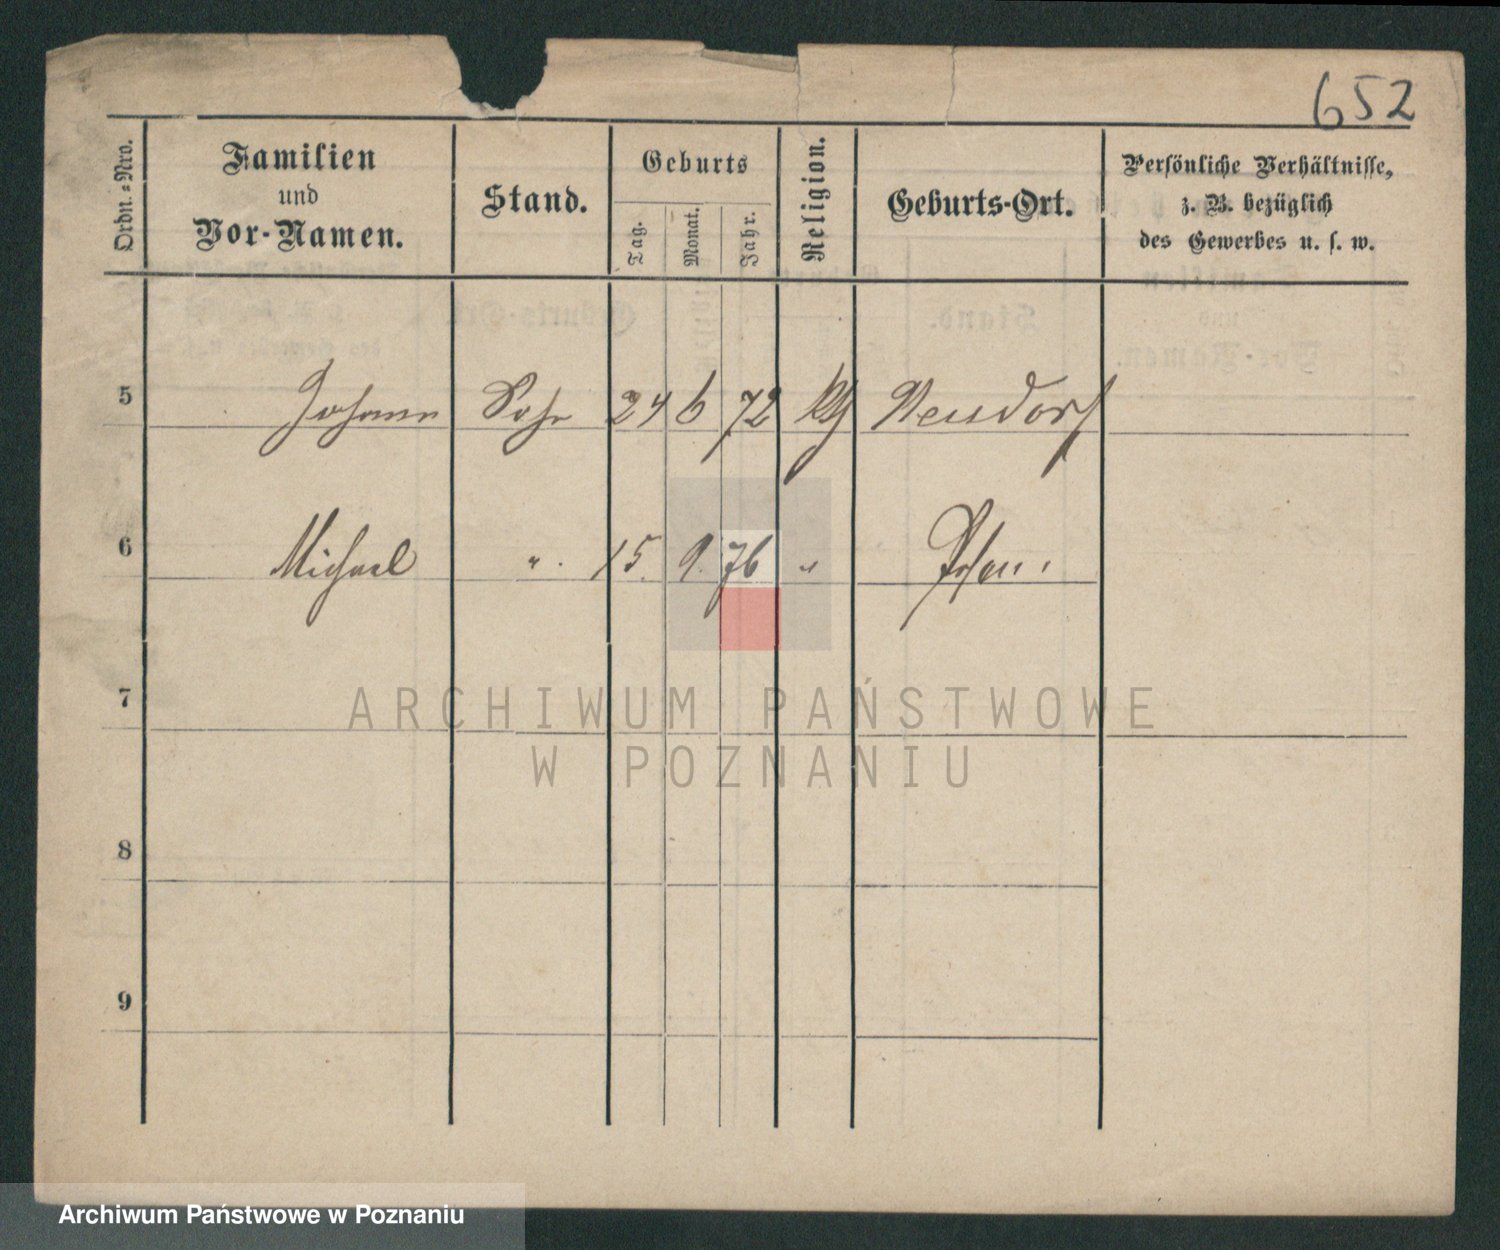 652
Ordn.=Nro.
Familien
und
Vor-Namen.
Stand.
Geburts
Tag.
Monat.
Jahr.
Religion.
Geburts-Ort.
Persönliche Verhältnisse,
z. B. bezüglich
des Gewerbes u. s. w.
5 Johann Sohn 24 6 72 kth Neudorf
6 Michael ". 15. 9. 76 " Posen.
7
ARCHIWUM PAŃSTWOWE
W POZNANIU
8
9
Archiwum Państwowe w Poznaniu